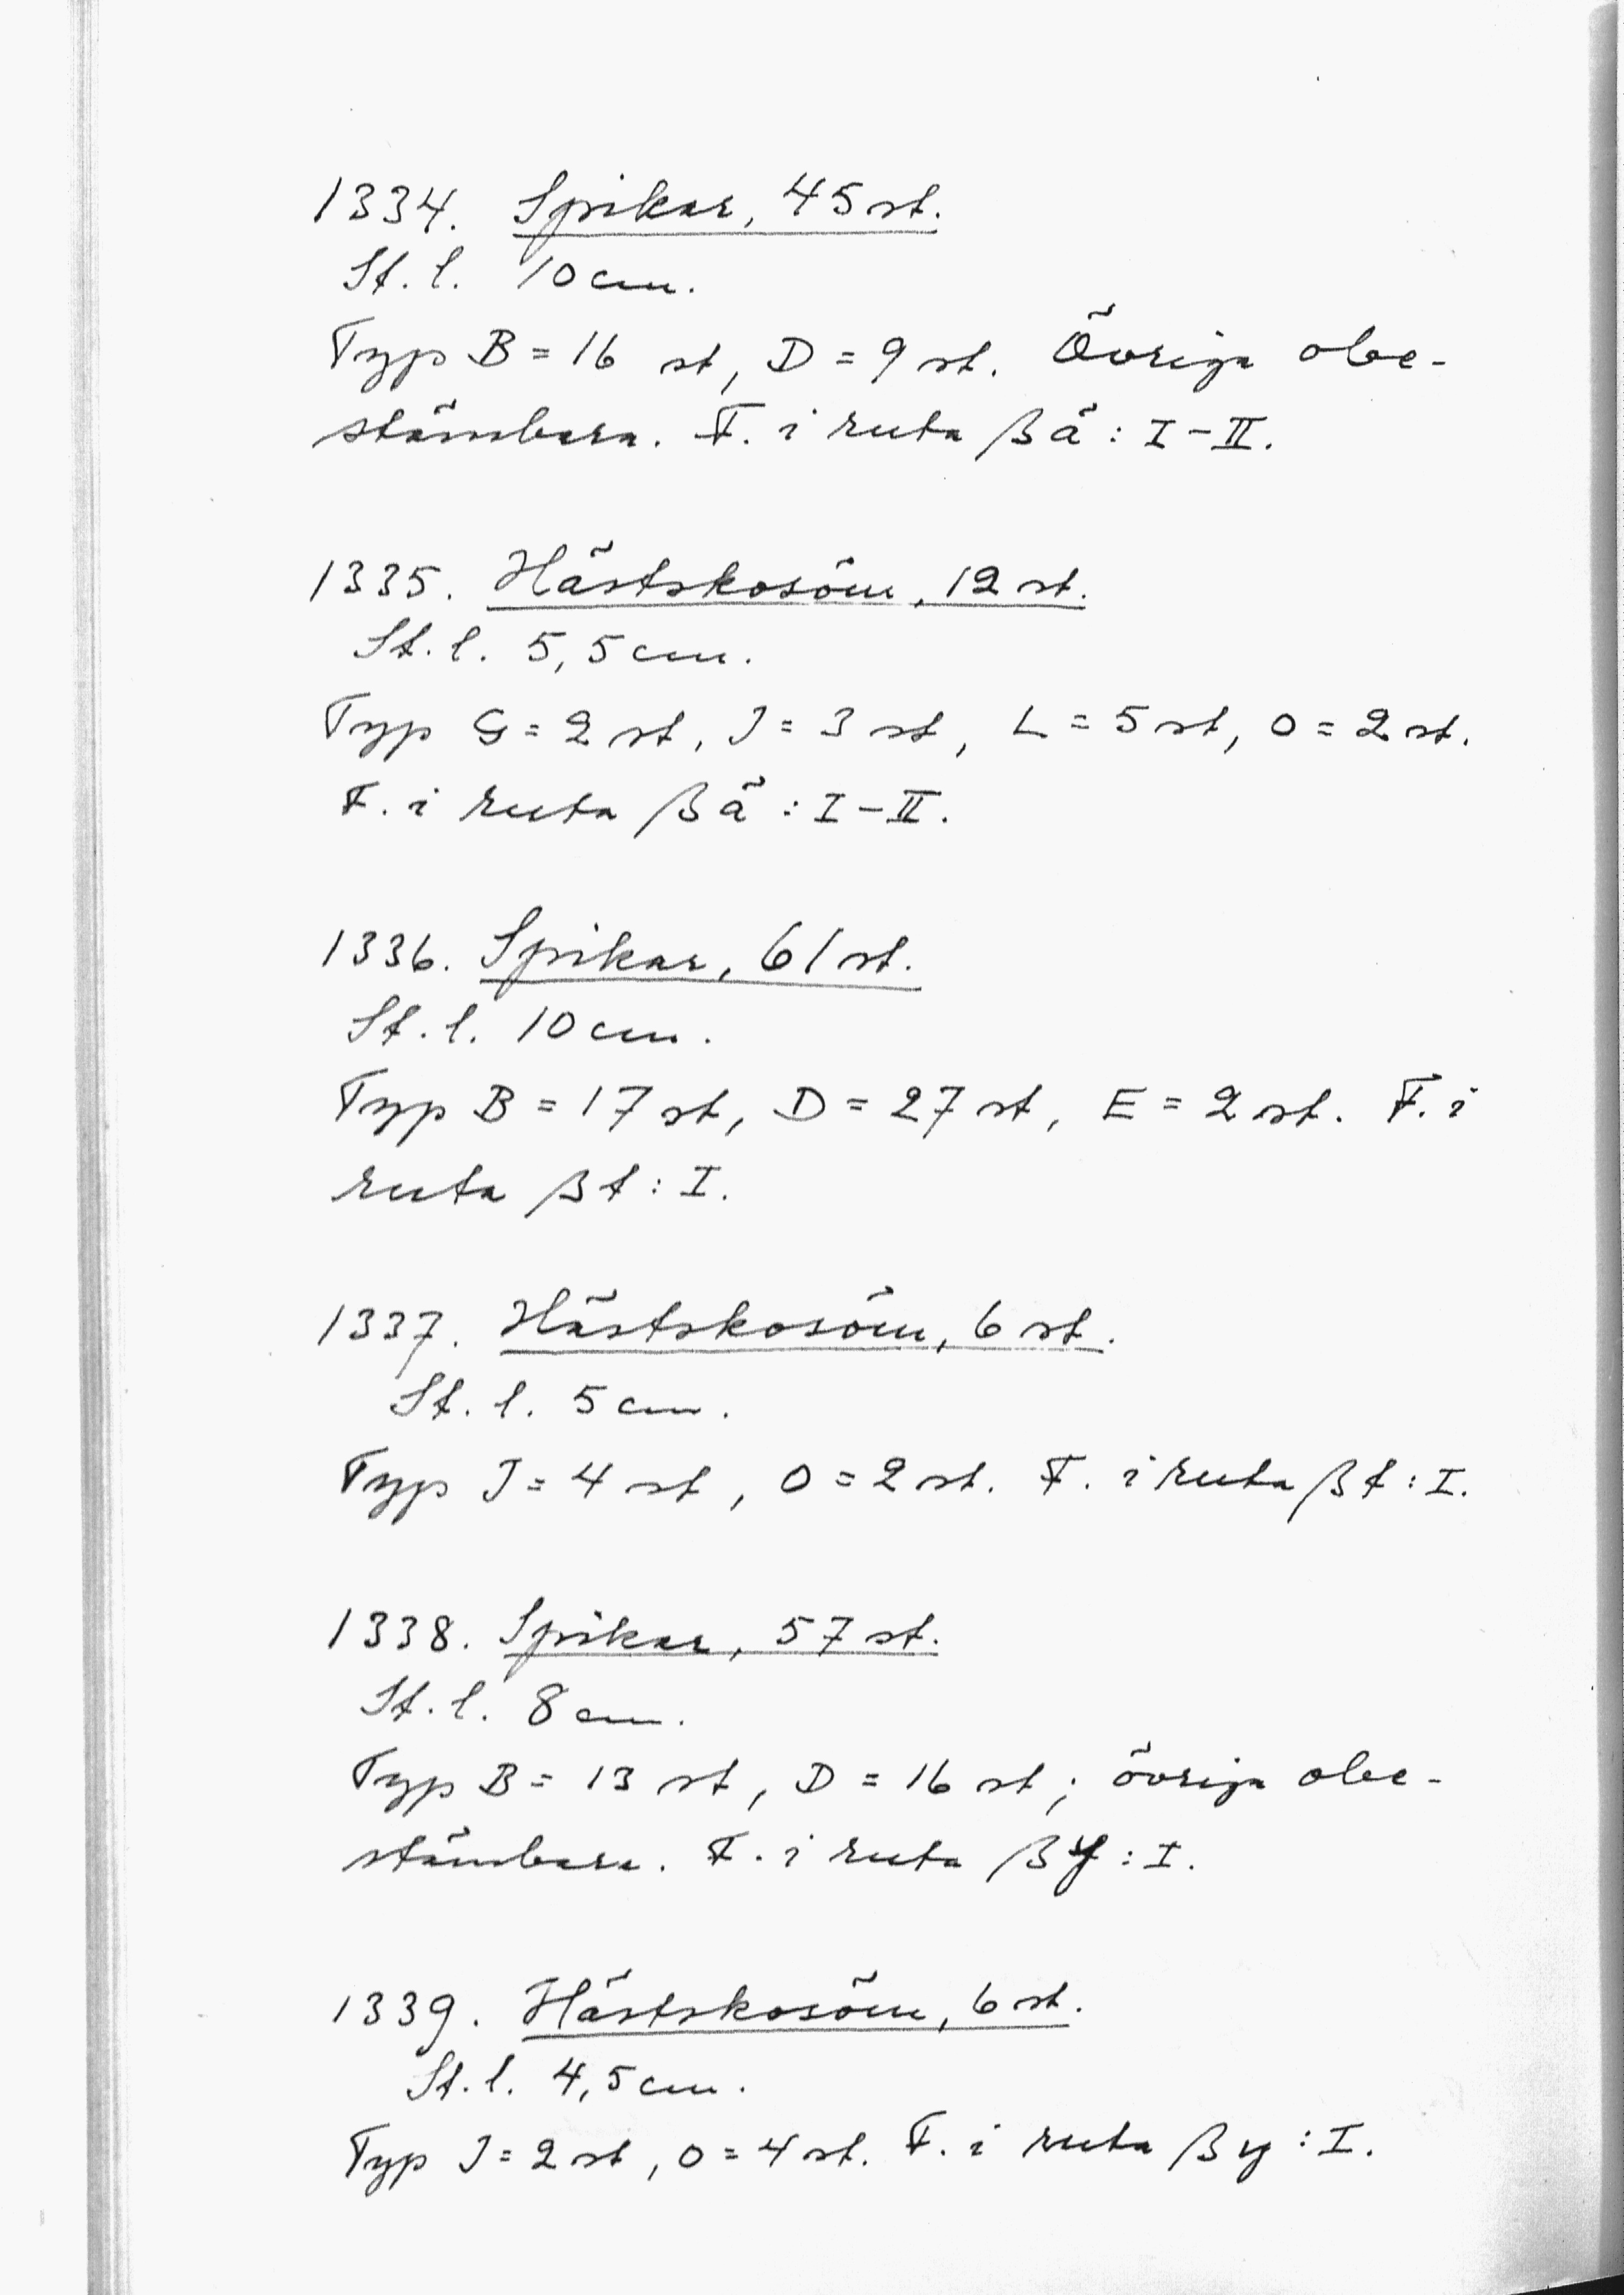 1334. Spikar, 45 st.
St. l. 10 cm.
Typ B = 16 st, D = 9 st. Övriga obe-
stämbara. F. i ruta ßä : I-II.
1335. Hästskosöm, 12 st.
St. l. 5,5 cm.
Typ G = 2 st, J = 3 st, L = 5 st, O = 2 st.
F. i ruta ßä : I-II.
1336. Spikar, 61 st.
St. l. 10 cm.
Typ B = 17 st, D = 27 st, E = 2 st. F. i
ruta ßt : I.
1337. Hästskosöm, 6 st.
St. l. 5 cm.
Typ J = 4 st, O = 2 st. F. i ruta ßt : I.
1338. Spikar, 57 st.
St. l. 8 cm.
Typ B = 13 st, D = 16 st; övriga obe-
stämbara. F. i ruta ßy : I.
1339. Hästskosöm, 6 st.
St. l. 4,5 cm.
Typ J = 2 st, O = 4 st. F. i ruta ßy : I.